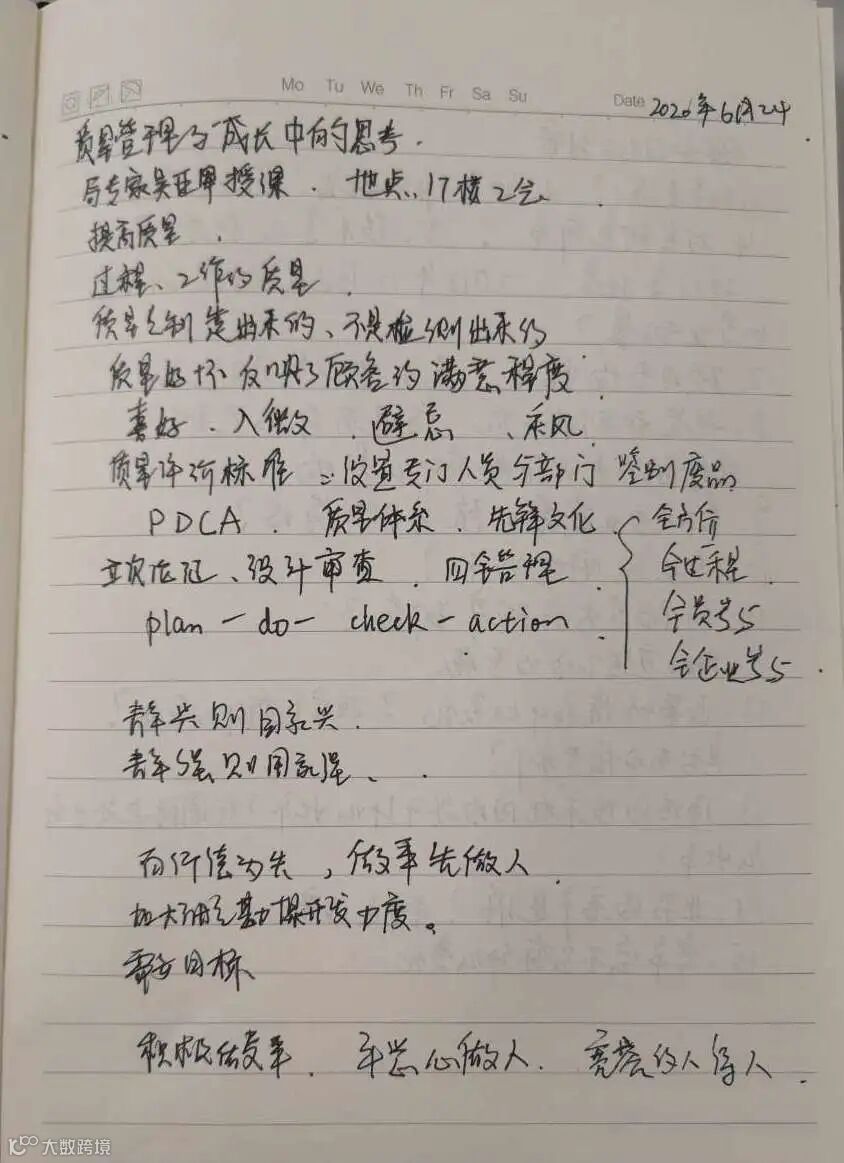 Mo Tu We Th Fr Sa Su
Date 2020年6月24
质量管理与成长中的思考.
局专家吴 授课. 地点:17楼2会.
提高质量.
过程、工作的质量.
质量是制造出来的、不是检测出来的
质量好坏反映了顾客的满意程度
喜好. 入微. 避忌、采风.
质量评价标准 设置专门人员与部门 鉴别废品
PDCA. 质量体系. 先锋文化. 全方位
设计审查. 四全管理 全过程.
plan - do - check - action 全员参与
全企业参与.
青年兴则国家兴.
青年强则国家强、.
百行德为先,做事先做人.
加大油气勘探开发力度。
需要目标
积极做事. 平常心做人. 宽 待人.
大数跨境